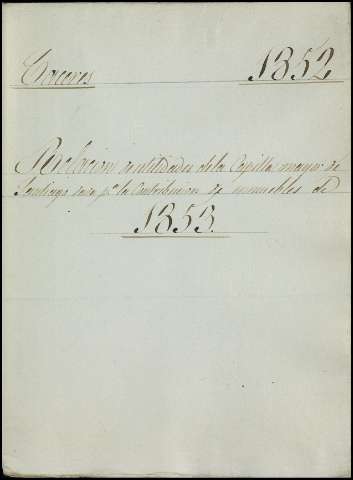 Caceres 1852
Relacion de utilidades de la Capilla mayor de
Santiago para pa. la Contribucion de inmuebles de
1853.